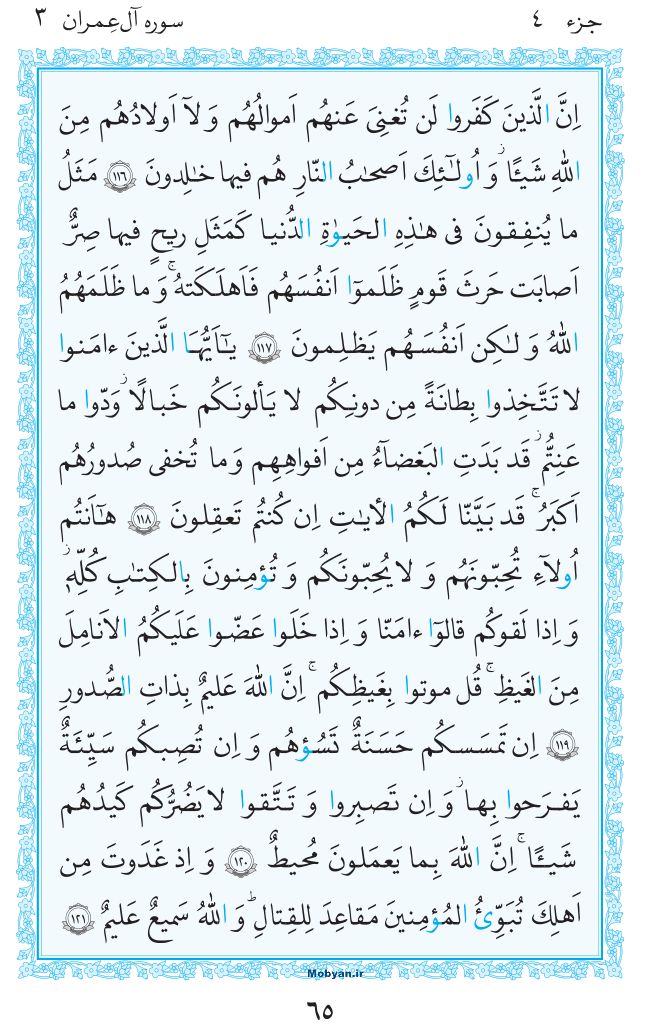 جزء ٤ سوره آل‌عِمران ٣
اِنَّ الَّذينَ كَفَروا لَن تُغنِىَ عَنهُم اَموالُهُم وَ لآ اَولادُهُم مِنَ
اللهِ شَيئًا ۖ وَ اُولٰٓئِكَ اَصحٰبُ النّارِ هُم فيها خٰلِدونَ ﴿١١٦﴾ مَثَلُ
ما يُنفِقونَ فى هٰذِهِ الحَيوٰةِ الدُّنيا كَمَثَلِ ريحٍ فيها صِرٌّ
اَصابَت حَرثَ قَومٍ ظَلَموٓا اَنفُسَهُم فَاَهلَكَتهُ ۚ وَ ما ظَلَمَهُمُ
اللهُ وَ لٰكِن اَنفُسَهُم يَظلِمونَ ﴿١١٧﴾ يٰٓاَيُّهَا الَّذينَ ءامَنوا
لا تَتَّخِذوا بِطانَةً مِن دونِكُم لا يَألونَكُم خَبالًا ۖ وَدّوا ما
عَنِتُّم ۖ قَد بَدَتِ البَغضآءُ مِن اَفواهِهِم وَ ما تُخفى صُدورُهُم
اَكبَرُ ۚ قَد بَيَّنّا لَكُمُ الأيٰتِ اِن كُنتُم تَعقِلونَ ﴿١١٨﴾ هٰٓاَنتُم
اُولآءِ تُحِبّونَهُم وَ لا يُحِبّونَكُم وَ تُؤمِنونَ بِالكِتٰبِ كُلِّهٖ
وَ اِذا لَقوكُم قالوٓا ءامَنّا وَ اِذا خَلَوا عَضّوا عَلَيكُمُ الاَنامِلَ
مِنَ الغَيظِ ۚ قُل موتوا بِغَيظِكُم ۚ اِنَّ اللهَ عَليمٌ بِذاتِ الصُّدورِ
﴿١١٩﴾ اِن تَمسَسكُم حَسَنَةٌ تَسُؤهُم وَ اِن تُصِبكُم سَيِّئَةٌ
يَفرَحوا بِها ۖ وَ اِن تَصبِروا وَ تَتَّقوا لا يَضُرُّكُم كَيدُهُم
شَيئًا ۚ اِنَّ اللهَ بِما يَعمَلونَ مُحيطٌ ﴿١٢٠﴾ وَ اِذ غَدَوتَ مِن
اَهلِكَ تُبَوِّئُ المُؤمِنينَ مَقاعِدَ لِلقِتالِ ۗ وَ اللهُ سَميعٌ عَليمٌ ﴿١٢١﴾
Mobyan.ir
٦٥